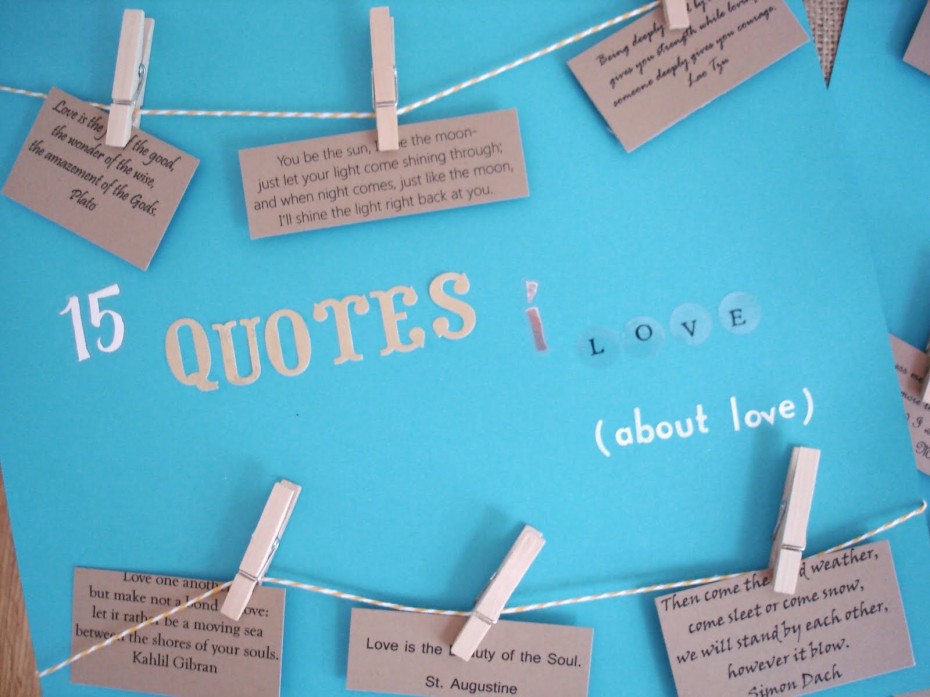 Being deeply l by
gives you strength while lov
someone deeply gives you courage.
Lao Tzu
Love is the of the good,
the wonder of the wise,
the amazement of the Gods.
Plato
You be the sun, e the moon-
just let your light come shining through;
and when night comes, just like the moon,
I'll shine the light right back at you.
15 QUOTES i LOVE
(about love)
Love one anoth
but make not a bond ove:
let it rather be a moving sea
between the shores of your souls.
Kahlil Gibran
Love is the uty of the Soul.
St. Augustine
Then come the d weather,
come sleet or come snow,
we will stand by each other,
however it blow.
Simon Dach